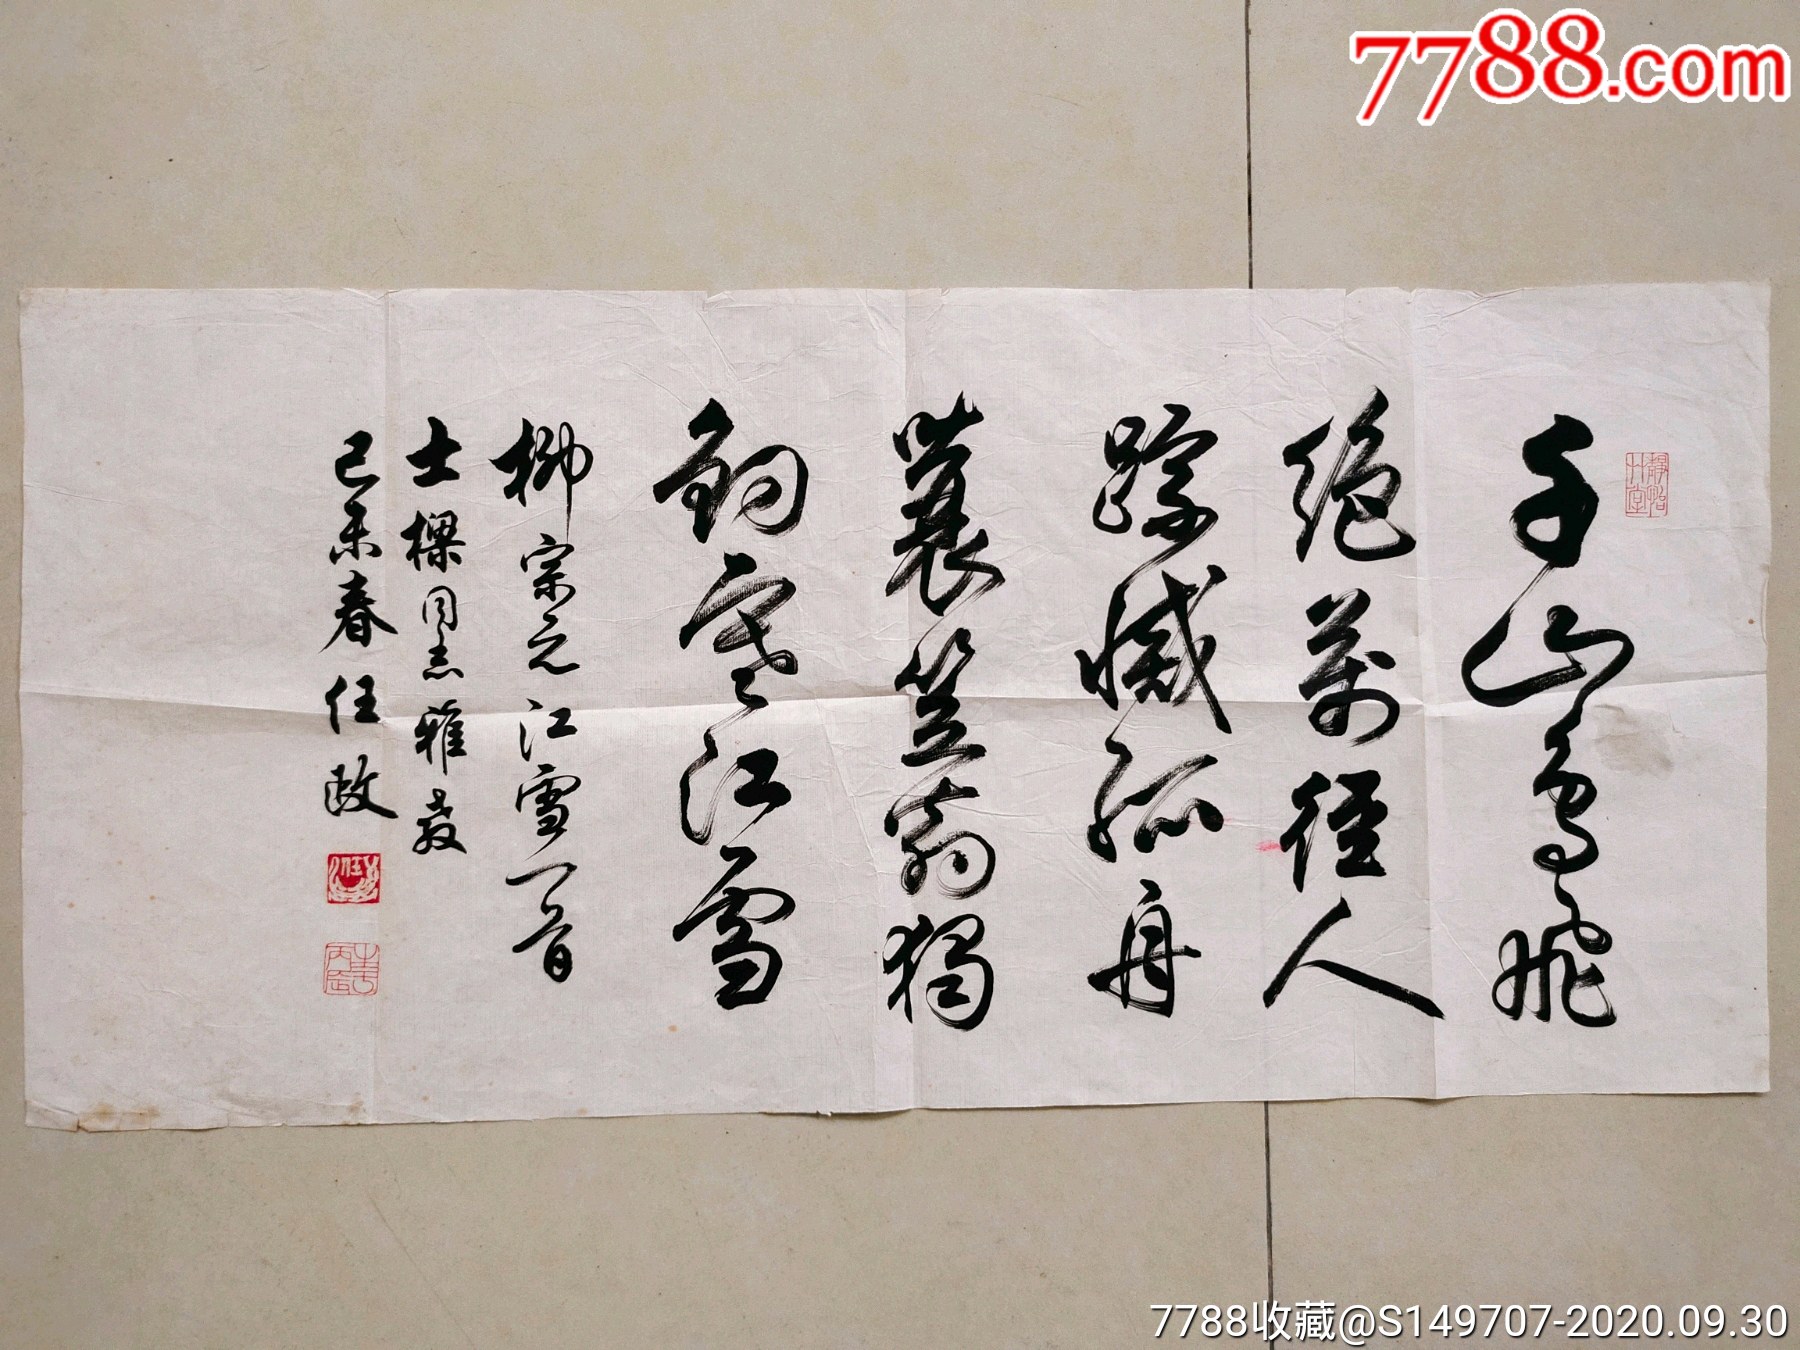 7788.com
千山鳥飛
絕萬徑人
踪滅孤舟
蓑笠翁獨
釣寒江雪
柳宗元江雪一首
士樑同志雅教
己未春任政
7788收藏@S149707-2020.09.30